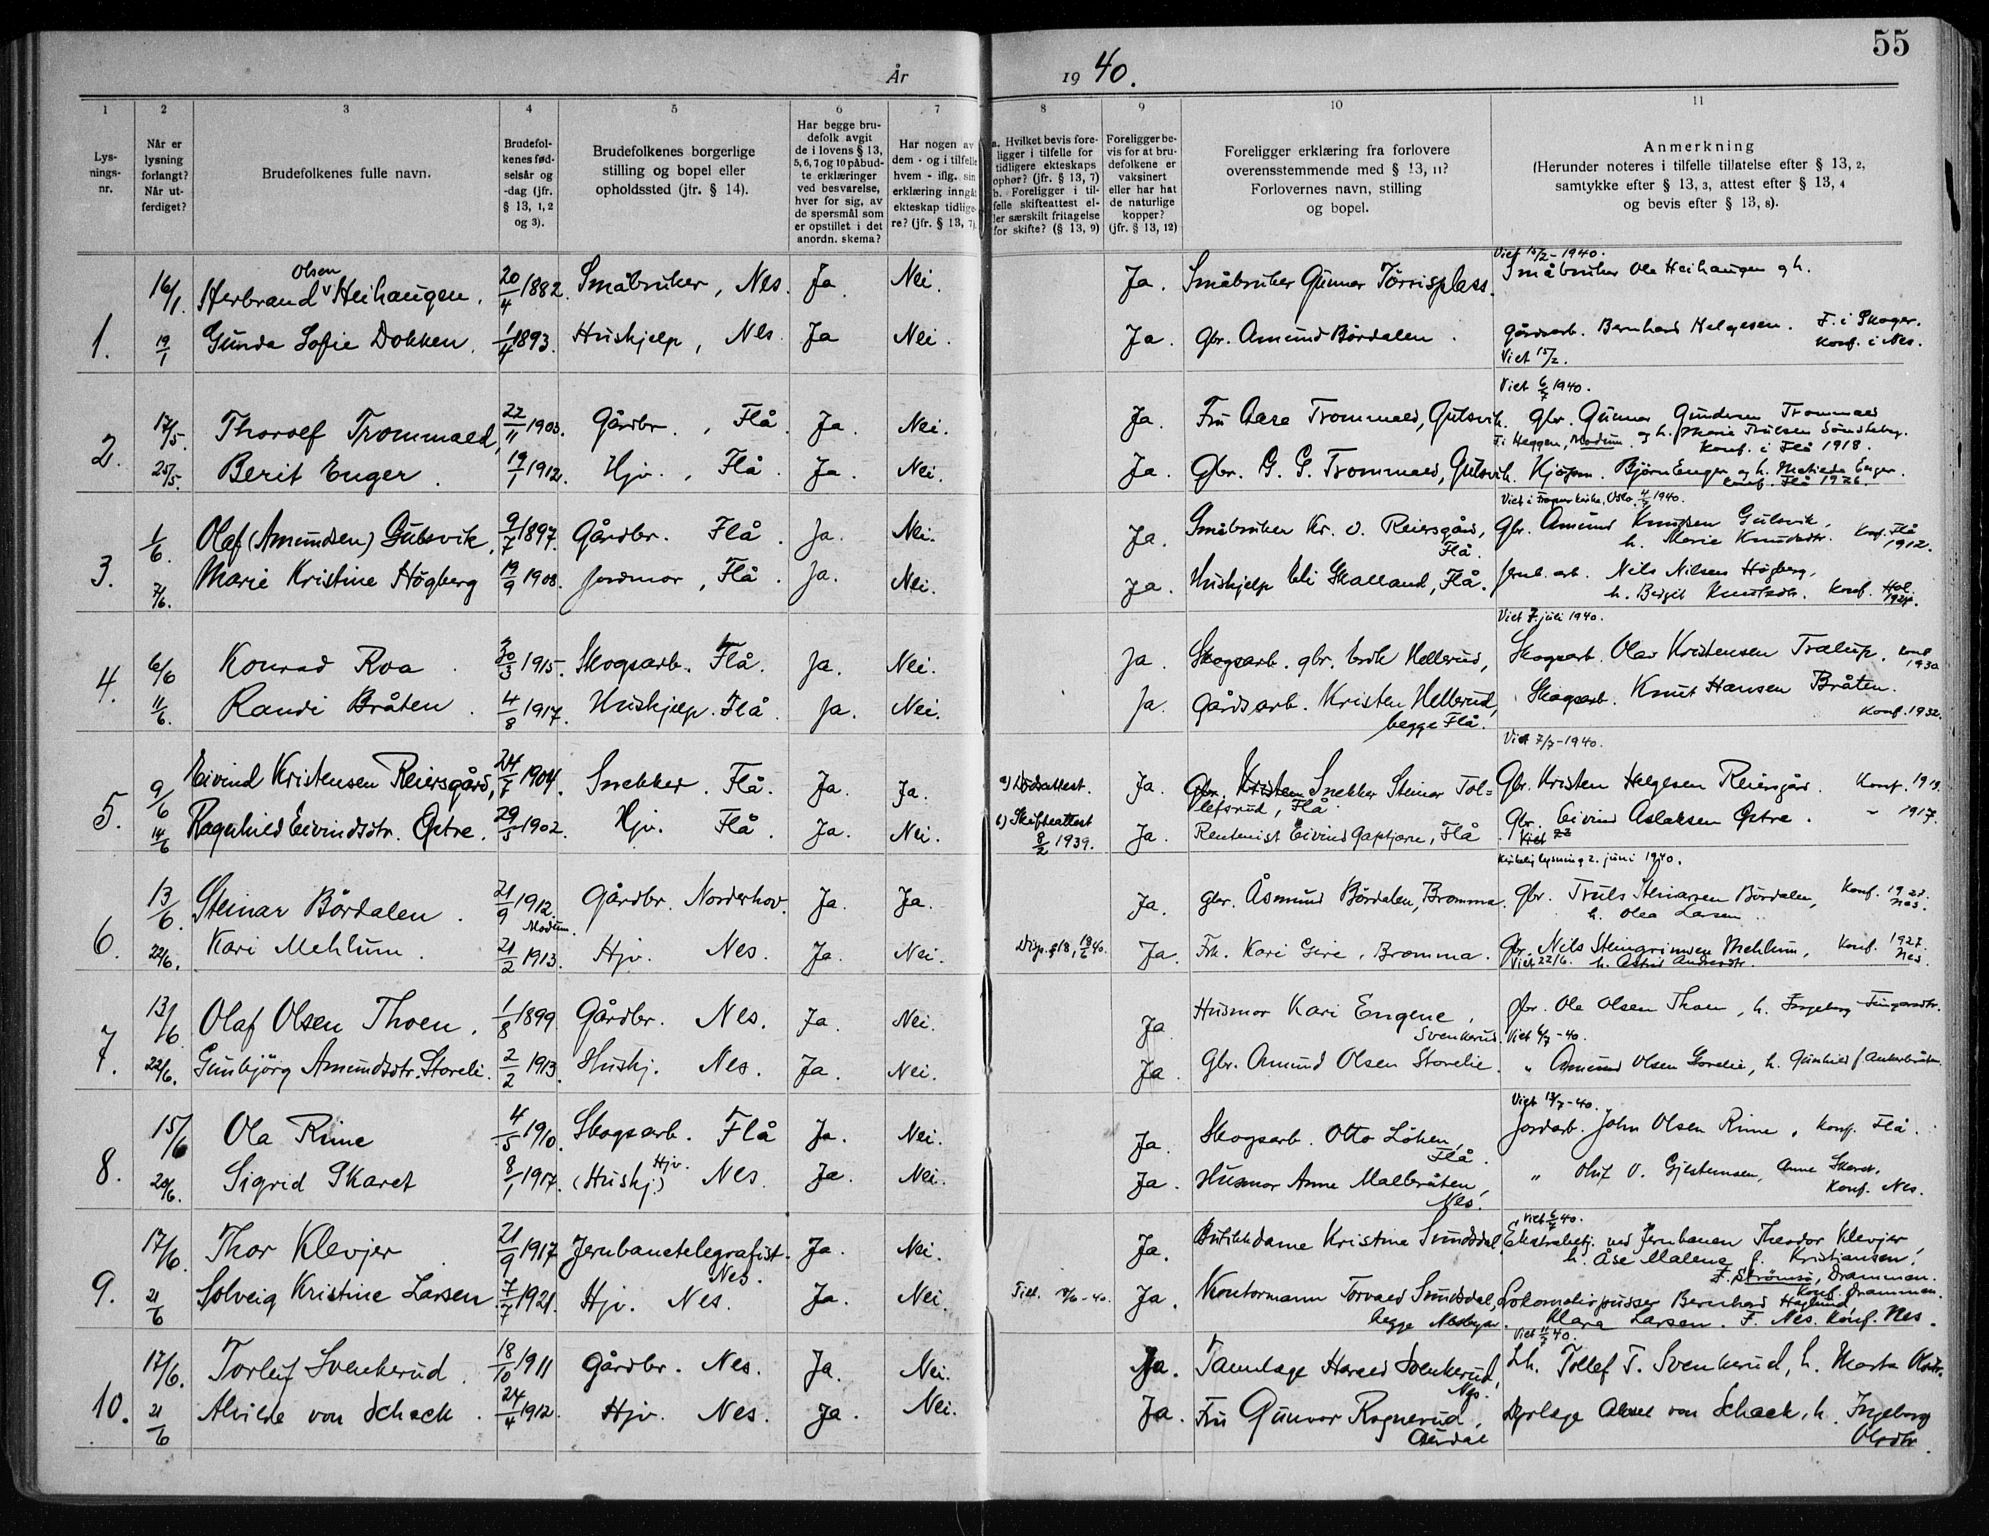 55
År 1940.
1 2 3 4 5 6 7 8 9 10 11
Lys-
nings-
nr.
Når er
lysning
forlangt?
Når ut-
ferdiget?
Brudefolkenes fulle navn.
Brudefol-
kenes fød-
selsår og
-dag (jfr.
§ 13, 1, 2
og 3).
Brudefolkenes borgerlige
stilling og bopel eller
opholdssted (jfr. § 14).
Har begge bru-
defolk avgit
de i lovens § 13,
5, 6, 7 og 10 påbud-
te erklæringer
ved besvarelse,
hver for sig, av
de spørsmål som
er opstillet i det
anordn. skema?
Har nogen av
dem - og i tilfelle
hvem - iflg. sin
erklæring inngåt
ekteskap tidlige-
re? (jfr. § 13, 7).
a. Hvilket bevis fore-
ligger i tilfelle for
tidligere ekteskaps
ophør? (jfr. § 13, 7)
b. Foreligger i til-
felle skifteattest el-
ler særskilt fritagelse
for skifte? (§ 13, 9)
Foreligger be-
vis for at bru-
defolkene er
vaksinert
eller har hat
de naturlige
kopper?
(jfr. § 13, 12)
Foreligger erklæring fra forlovere
overensstemmende med § 13, 11?
Forlovernes navn, stilling
og bopel.
Anmerkning
(Herunder noteres i tilfelle tillatelse efter § 13, 2,
samtykke efter § 13, 3, attest efter § 13, 4
og bevis efter § 13, 8).
Viet 15/2 - 1940.
1. 16/1 Herbrand Olsen Heihaugen. 20/4 1882. Småbruker, Nes. Ja. Nei. Ja. Småbruker Gunnar Törrisplass. Småbruker Ole Heihaugen gh.
19/1 Gunda Sofie Dokken. 1/4 1893. Hushjelp, Nes. Ja Nei. Ja. Gbr. Amund Bördalen. Gårdsarb. Bernhard Helgesen. F. i Skoger.
Konf. i Nes.
Viet 15/2.
Viet 6/7 1940.
2. 17/5 Thorolf Trommald, 22/11 1903. Gårdbr., Flå. Ja. Nei. Ja. Fru Aase Trommald, Gulsvik. Gbr. Gunnar Gundersen Trommald
F. i Heggen, Modum. og h. Marie Trulsen
Konf. i Flå 1918.
25/5. Berit Enger. 19/1 1912. Hjv., Flå. Ja. Nei. Ja. Gbr. G. G. Trommald, Gulsvik. Kjöpm. Björn Enger og h. Matilda Enger.
Konf. Flå 1926.
Viet i Frogner kirke, Oslo, 4/7 1940.
3. 1/6 Olaf (Amundsen) Gulsvik, 9/7 1897. Gårdbr. Flå. Ja. Nei. Ja. Småbruker Kr. O. Reiersgård, Flå. Gbr. Amund Knudsen Gulsvik,
h. Marie Knudsdtr. Konf. Flå 1912.
7/6. Marie Kristine Högberg 19/9 1908. Jordmor, Flå. Ja. Nei. Ja. Hushjelp Eli Skalland, Flå. Jernb. arb. Nils Nilsen Högberg,
h. Birgit Knutsdtr. Konf. Hol. 1924.
Viet 7. juli 1940.
4. 6/6 Konrad Roa. 30/3 1915. Skogsarb. Flå. Ja. Nei. Ja. Skogsarb. gbr. Erik Hellerud, Skogsarb. Olav Kristensen Trælup. Konf. 1930
11/6. Randi Bråten. 4/8 1917. Hushjelp. Flå. Ja. Nei. Ja. Gårdsarb. Kristen Hellerud,
begge Flå. Skogsarb. Knut Hansen Bråten.
Konf. 1932.
Viet 7/7 - 1940.
5. 9/6 Eivind Kristensen Reiersgård, 24/7 1904. Snekker. Flå. Ja. Ja. a) Dødsattest. Ja. Gbr. Kristen Snekker Steinar Tol=
lefsrud, Flå Gbr. Kristen Helgesen Reiersgård. Konf. 1919.
14/6 Ragnhild Eivindsdtr. Östre. 29/5 1902. Hjv. Flå. Ja. Nei. b) Skifteattest
8/2 1939. Ja. Rentenist Eivind Gaptjern, Flå Gbr. Eivind Aslaksen Östre. " 1917.
Viet
Kirkelig lysning 2. juni 1940.
6. 13/6 Steinar Bördalen. 21/9 1912. Modum. Gårdbr. Norderhov. Ja. Ja. Ja. Gbr. Åsmund Bördalen, Bromma. Gbr. Truls Steinarsen Bördalen, Konf. Nes.
h. Olea Larsen
22/6. Kari Mehlum. 21/2 1913. Hjv. Nes. Ja. Nei. Disp. § 18, 18/6 40. Ja. Frk. Kari Geire, Bromma. Gbr. Nils Steingrimsen Mehlum, Konf. 1927. Nes
Viet 22/6. h. Astrid Andersdtr.
7. 13/6. Olaf Olsen Thoen. 1/8 1899 Gårdbr. Nes. Ja. Nei. Ja Husmor Kari Engene,
Svenkerud. Gbr. Ole Olsen Thoen, h. Ingeborg
Viet 6/7 - 40.
22/6. Gunbjörg Amundsdtr. Storeli. 2/2 1913. Hushj. Nes. Ja. Nei. Ja. Gbr. Amund Olsen Storelie. " Amund Olsen Storelie, h. Gunhild
Viet 13/7 - 40.
8. 15/6 Ola Rime 4/5 1910. Skogsarb. Flå Ja. Nei. Ja. Skogsarb. Otto Löken,
Flå. Jordarb. John Olsen Rime, Konf. Flå.
20/6. Sigrid Skaret 8/1 1917 (Hushj.) Hjv. Nes. Ja. Nei. Ja. Husmor Anne Malbråten,
Nes. " Oluf O. Gjestemsen, Anne Skaret.
Konf. Nes.
Viet 6/7 40.
9. 17/6. Thor Klevjer 21/9 1917 Jernbanetelegrafist. Nes. Ja. Nei. Ja. Butikkdame Kristine Sundsdal, Ekstrabetj. ved Jernbanen Theodor Klevjer,
h. Åse Malena f. Kristiansen.
F. Strömsö, Drammen.
Konf. Drammen.
21/6 Solveig Kristine Larsen 7/7 1921. Hjv. Nes. Ja. Nei. Ja. Kontormann Torvald Sundsdal,
begge Nesbyen. Lokomotivpusser Bernhard Haglund
Klara Larsen. F. Nes. Konf. Nes.
Viet 11/7 40.
10. 17/6. Torleif Svenkerud. 18/10 1911 Gårdbr. Nes. Ja. Nei. Ja. Tannlæge Harald Svenkerud,
Nes. Lh. Tollef T. Svenkerud, h. Marta Olsdtr.
21/6 Alvilde von Schack. 24/4 1912. Hjv. Nes. Ja. Nei. Ja. Fru Gunvor Rognerud,
Aurdal Dyrlæge Aksel von Schack, h. Ingeborg
Olsdtr.